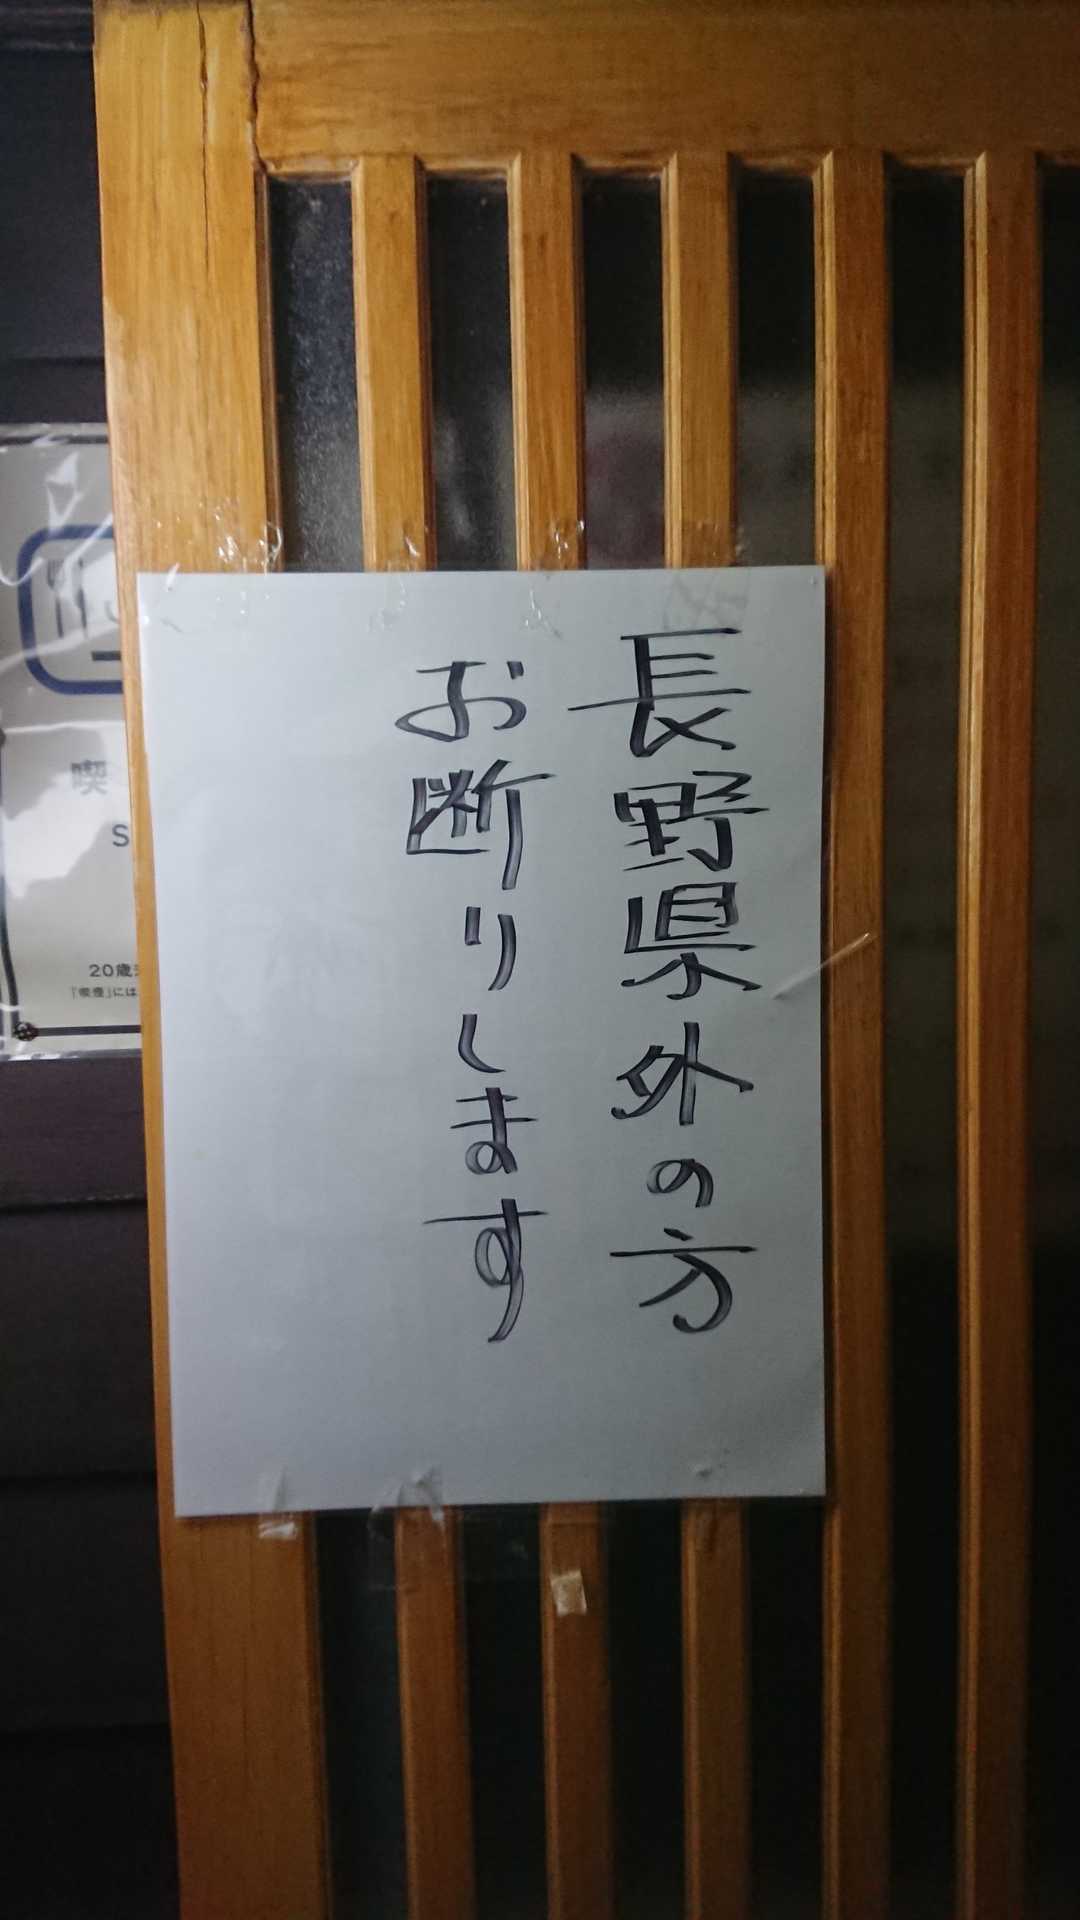 長野県外の方
お断りします
喫
S
20歳
「喫煙」には